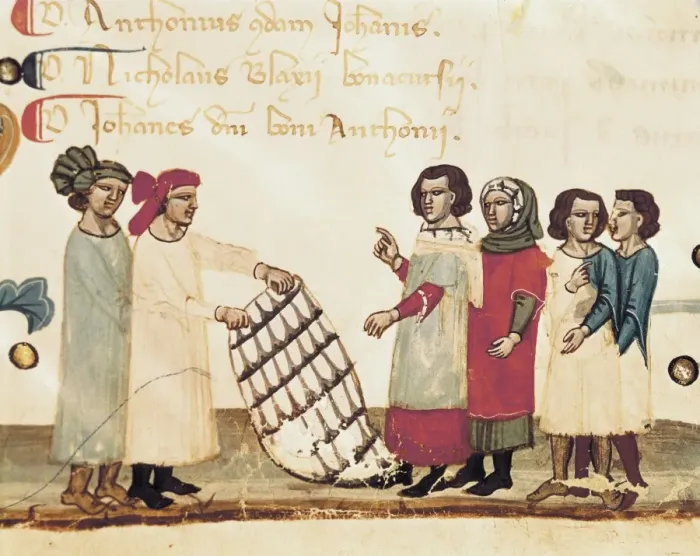 D. Anthonius qdam Johanis.
D. Nicholaus Blaxii bonacursii.
D. Johanes dni boni Anthonii.